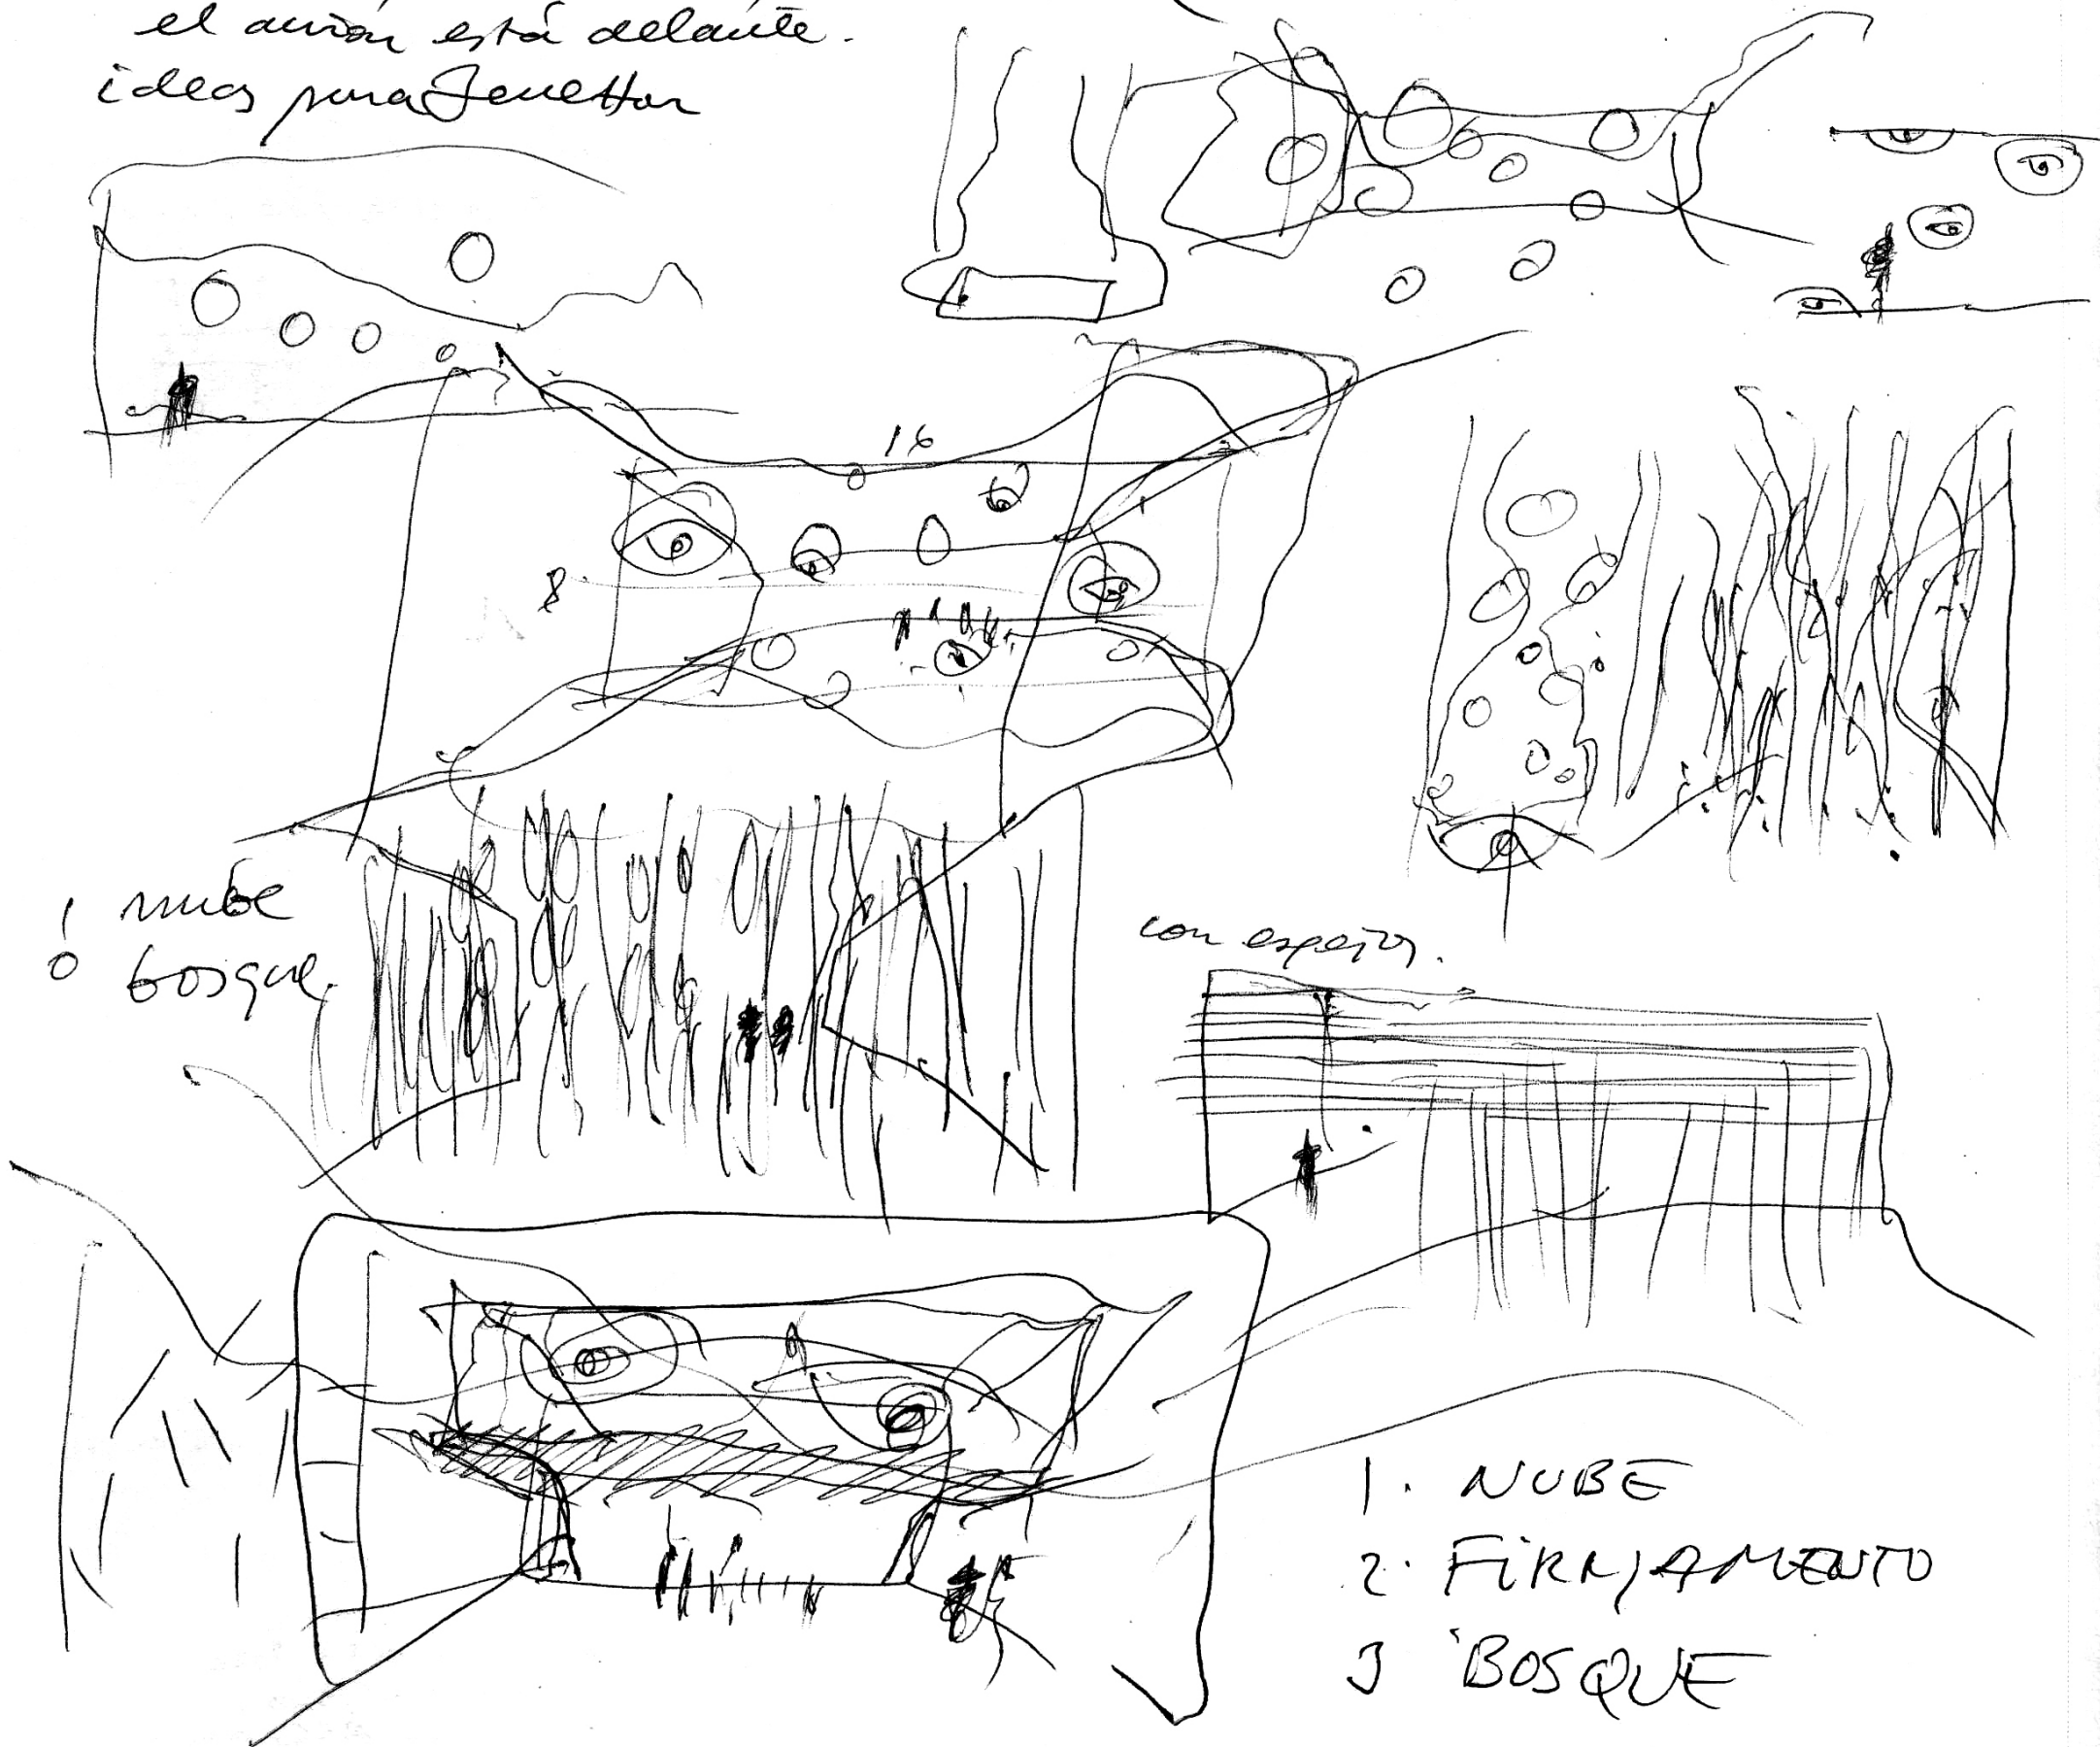 el avión está delante.
ideas para
16
8
nube
ó bosque
con espejos.
1. NUBE
2. FiRMAMENTO
3 BOSQUE